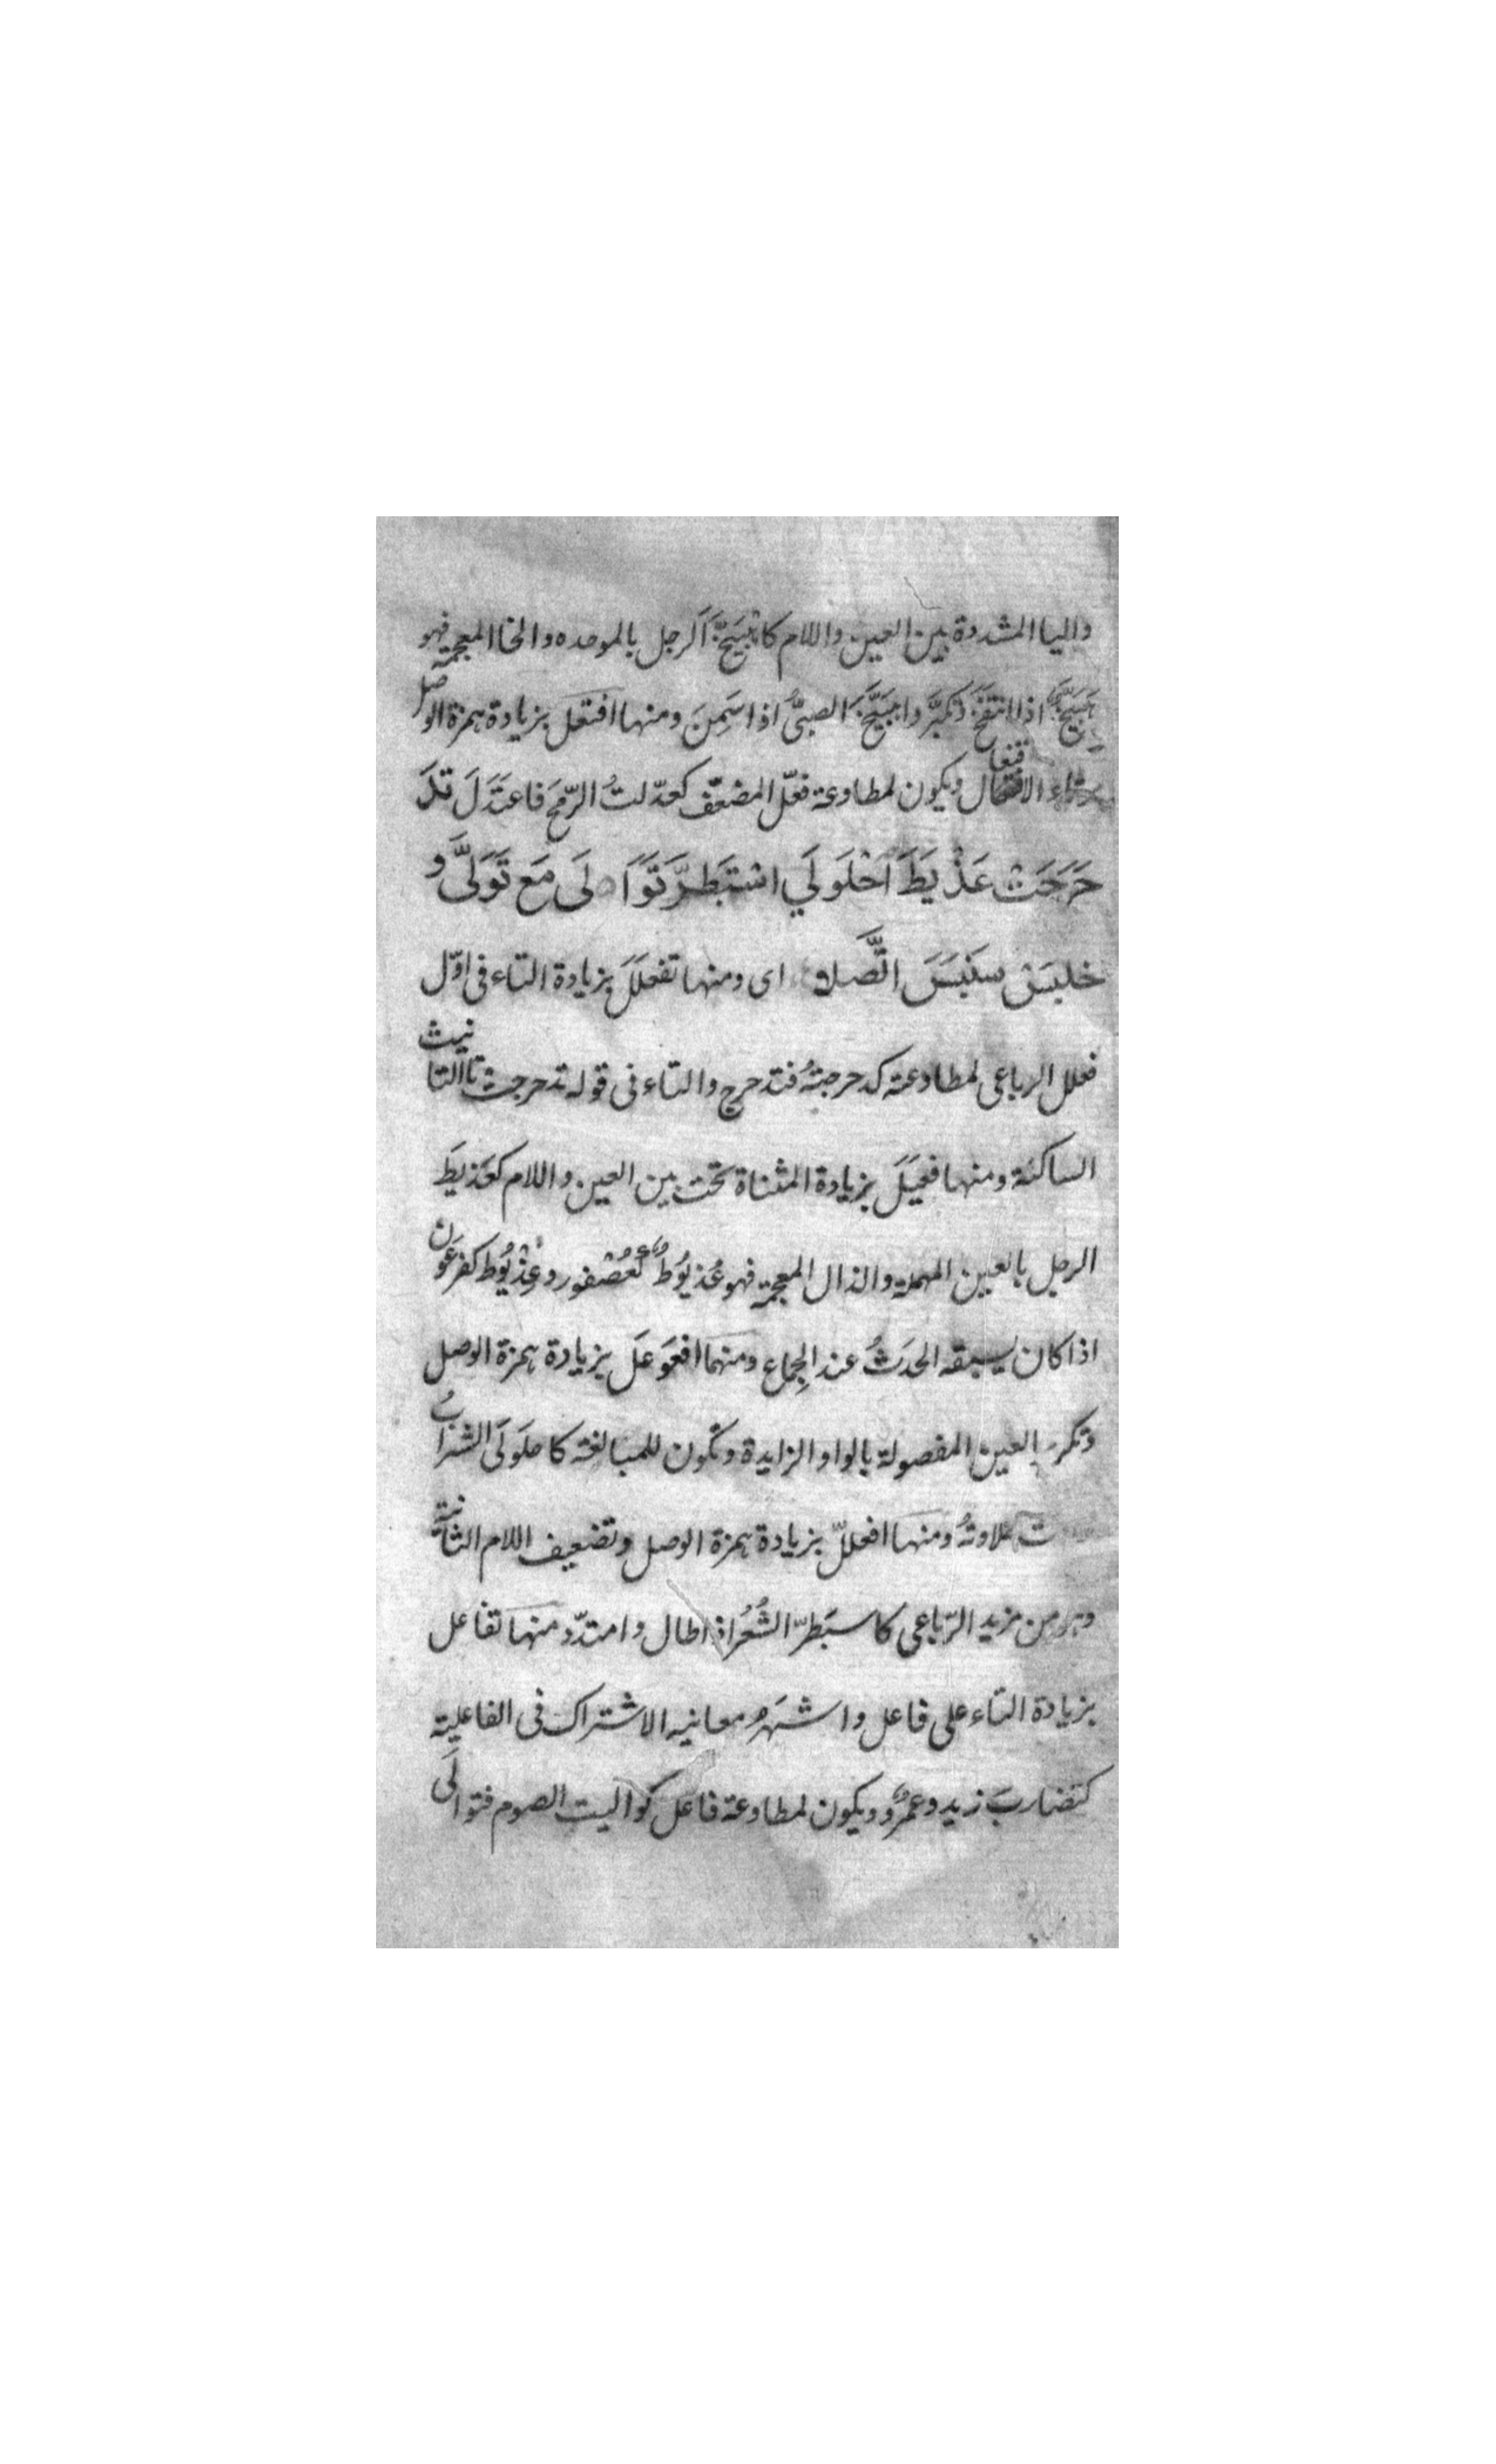 واليا المشددة بين العين واللام كاهْبَيَّخَ الرجل بالموحده والخا المعجمة فهو
هَبَيَّخ اذا انتفَخَ وتكبَّر واهبَيَّخَ الصبىُّ اذا سَمِنَ ومنها افتعل بزيادة همزة الوصل
وتاء الافتعال ويكون لمطاوعة فعّل المضعّف كعدّلتُ الرّمحَ فاعتَدَلَ تَدَ
حَرَجَتْ عَذْيَطَ اَحْلَولَي اسْبَطَرَّ تَوَا لَى مَع تَوَلَّى و
خلبَسْ سَنبَسَ اتَّصلا اى ومنها تفعلَلَ بزيادة التاء فى اوّل
فعلل الرباعى لمطاوعته كدحرجتُهُ فتدحرج والتاء فى قوله تدحرجتْ تا التانيث
الساكنة ومنها فعيَلَ بزيادة المثناة تحت بين العين واللام كعَذيَطَ
الرجل بالعين المهملة والذال المعجمة فهو عُذيُوطٌ كعُصْفور وعِذْيُوط كفرعَون
اذا كان يسبقه الحدَثُ عند الجِماع ومنها افعَوعَلَ بزيادة همزة الوصل
وتكرير العين المفصولة بالواو الزايدة وتكون للمبالغة كاحلَولَى الشرابُ
حلاوتهُ ومنها افعللّ بزيادة همزة الوصل وتضعيف اللام الثانية
وهو من مزيد الرّباعى كاسبَطرّ الشَّعُر اذا طال وامتدّ ومنها تفاعل
بزيادة التاء على فاعل واشهَرُ معانيه الاشتراك فى الفاعلية
كتضاربَ زيد وعمرٌو ويكون لمطاوعة فاعل كواليت الصوم فتوالَى